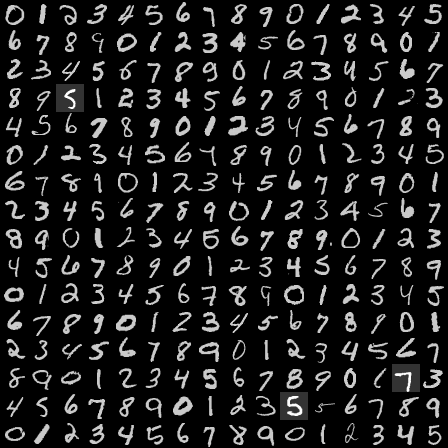 0 1 2 3 4 5 6 7 8 9 0 1 2 3 4 5
6 7 8 9 0 1 2 3 4 5 6 7 8 9 0 1
2 3 4 5 6 7 8 9 0 1 2 3 4 5 6 7
8 9 5 1 2 3 4 5 6 7 8 9 0 1 2 3
4 5 6 7 8 9 0 1 2 3 4 5 6 7 8 9
0 1 2 3 4 5 6 7 8 9 0 1 2 3 4 5
6 7 8 9 0 1 2 3 4 5 6 7 8 9 0 1
2 3 4 5 6 7 8 9 0 1 2 3 4 5 6 7
8 9 0 1 2 3 4 5 6 7 8 9 0 1 2 3
4 5 6 7 8 9 0 1 2 3 4 5 6 7 8 9
0 1 2 3 4 5 6 7 8 9 0 1 2 3 4 5
6 7 8 9 0 1 2 3 4 5 6 7 8 9 0 1
2 3 4 5 6 7 8 9 0 1 2 3 4 5 6 7
8 9 0 1 2 3 4 5 6 7 8 9 0 1 7 3
4 5 6 7 8 9 0 1 2 3 5 5 6 7 8 9
0 1 2 3 4 5 6 7 8 9 0 1 2 3 4 5